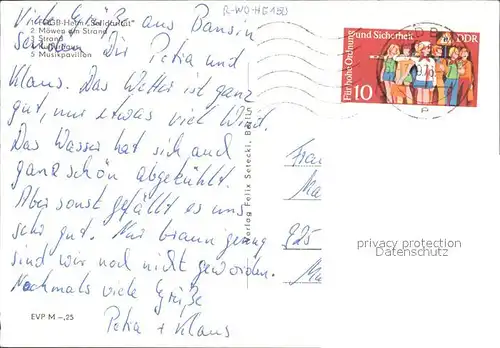 Viele Grüße aus Bansin
senden Dir Petra und
Klaus. Das Wetter ist ganz
gut, nur etwas viel Wind.
Das Wasser hat sich auch
ganz schön abgekühlt.
Aber sonst gefällt es uns
sehr gut. Nur braun genug
sind wir noch nicht geworden.
Nochmals viele Grüße
Petra + Klaus
FDGB-Heim „Solidarität"
2 Möwen am Strand
3 Strand
5 Musikpavillon
EVP M -,25
Verlag Felix Setecki, Berlin
R-WO-HE150
Für hohe Ordnung
und Sicherheit
DDR
10
Frau
925
privacy protection
Datenschutz